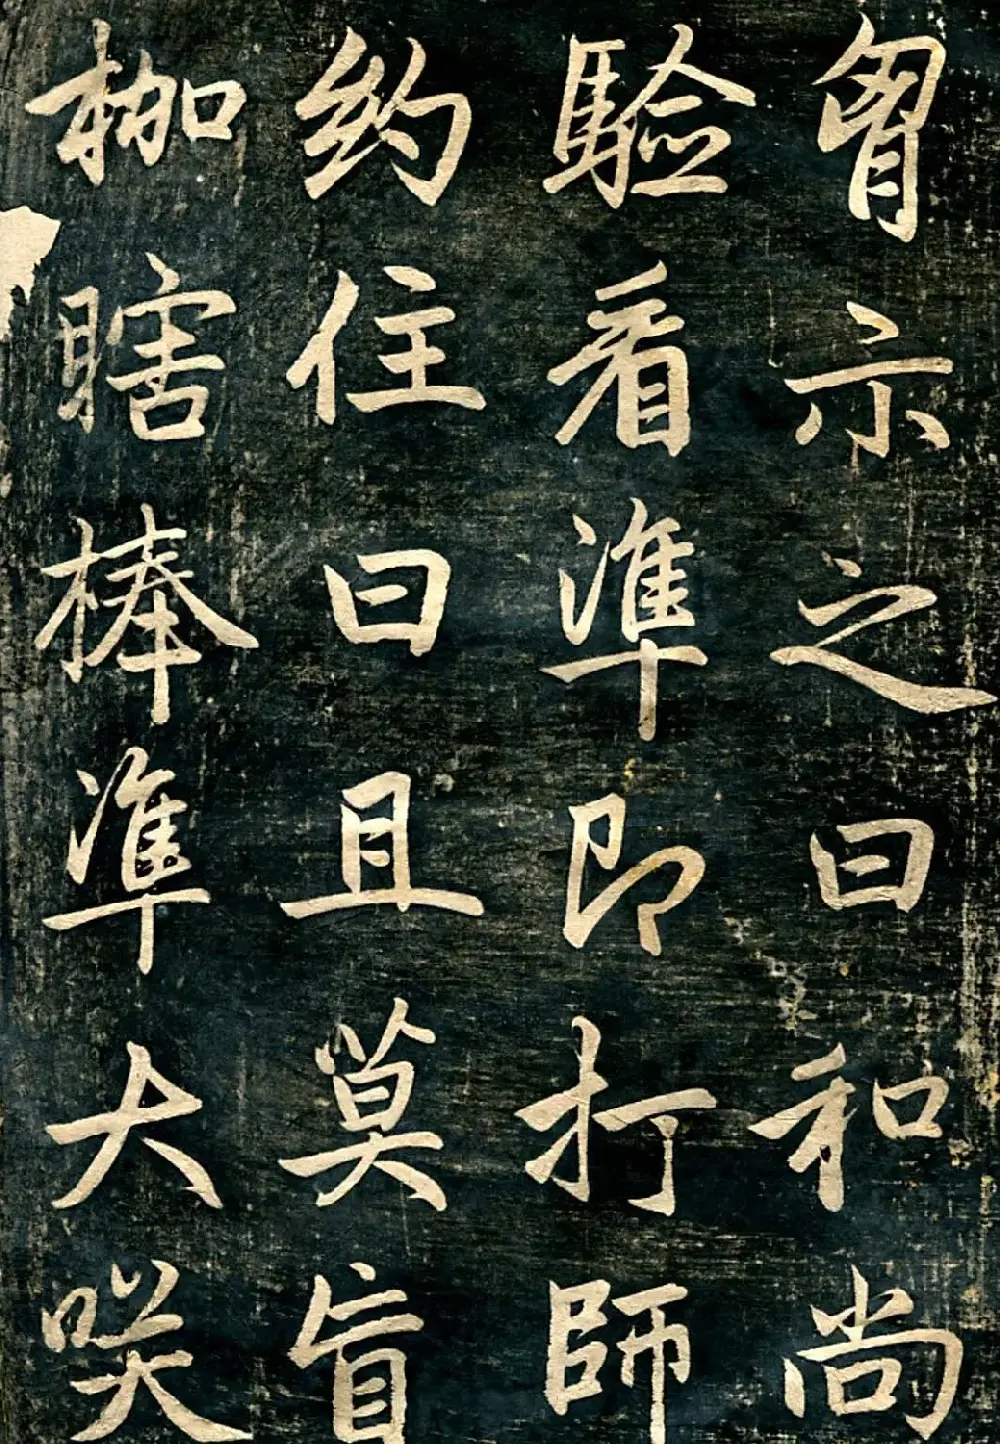 胷示之曰和尚
驗看準即打師
約住曰且莫盲
枷瞎棒準大咲